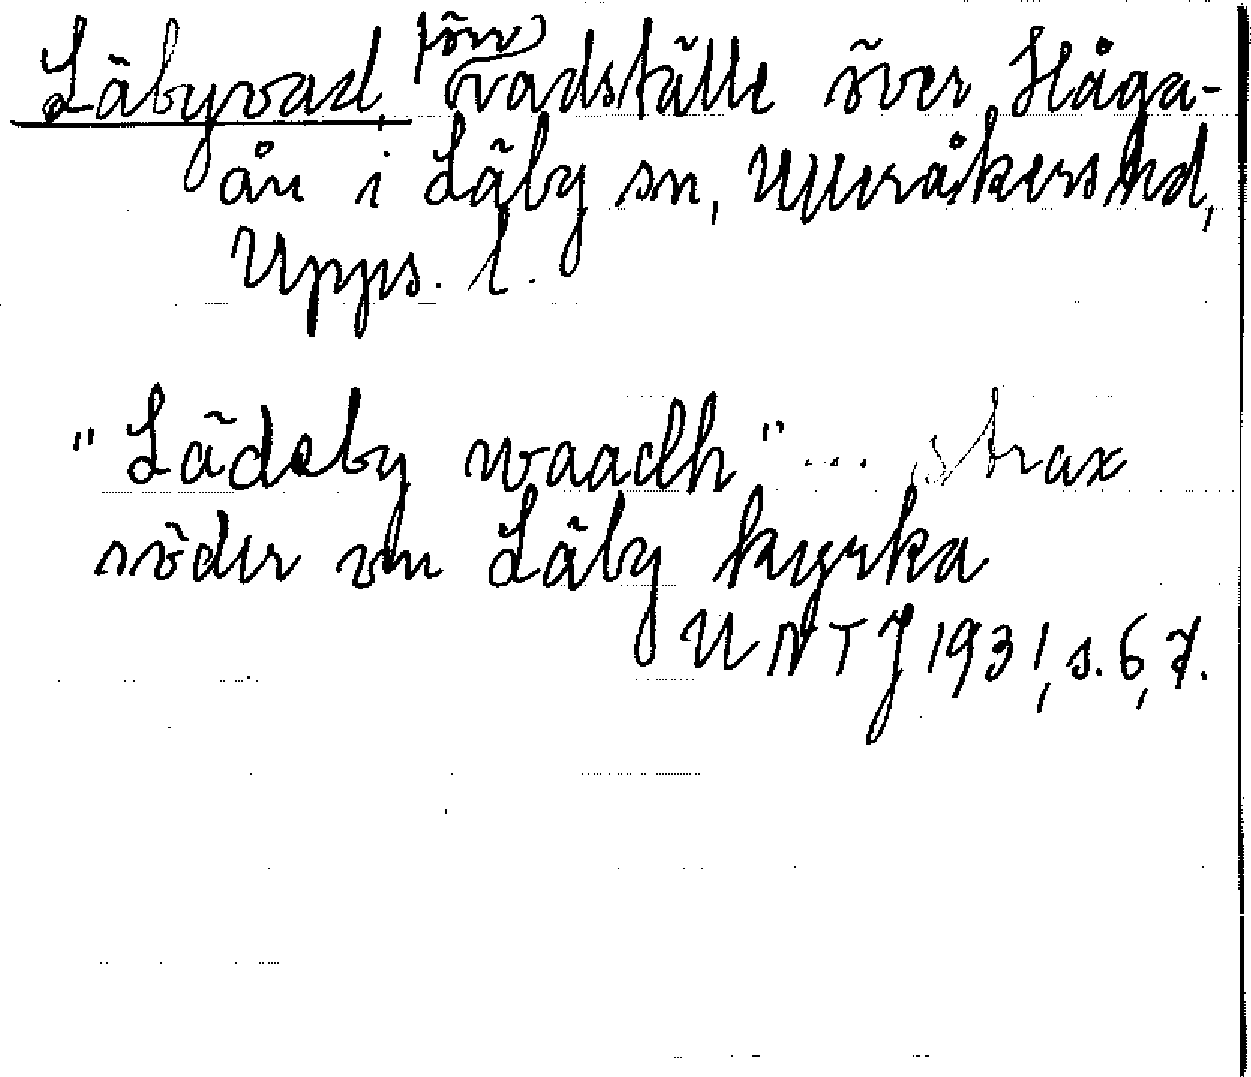 Läbyvad, förr vadställe över Håga-
ån i Läby sn, Ulleråkers hd,
Upps. l.
"Lädeby waadh" ... strax
söder om Läby kyrka
UNTJ 1931, s. 6, 7.